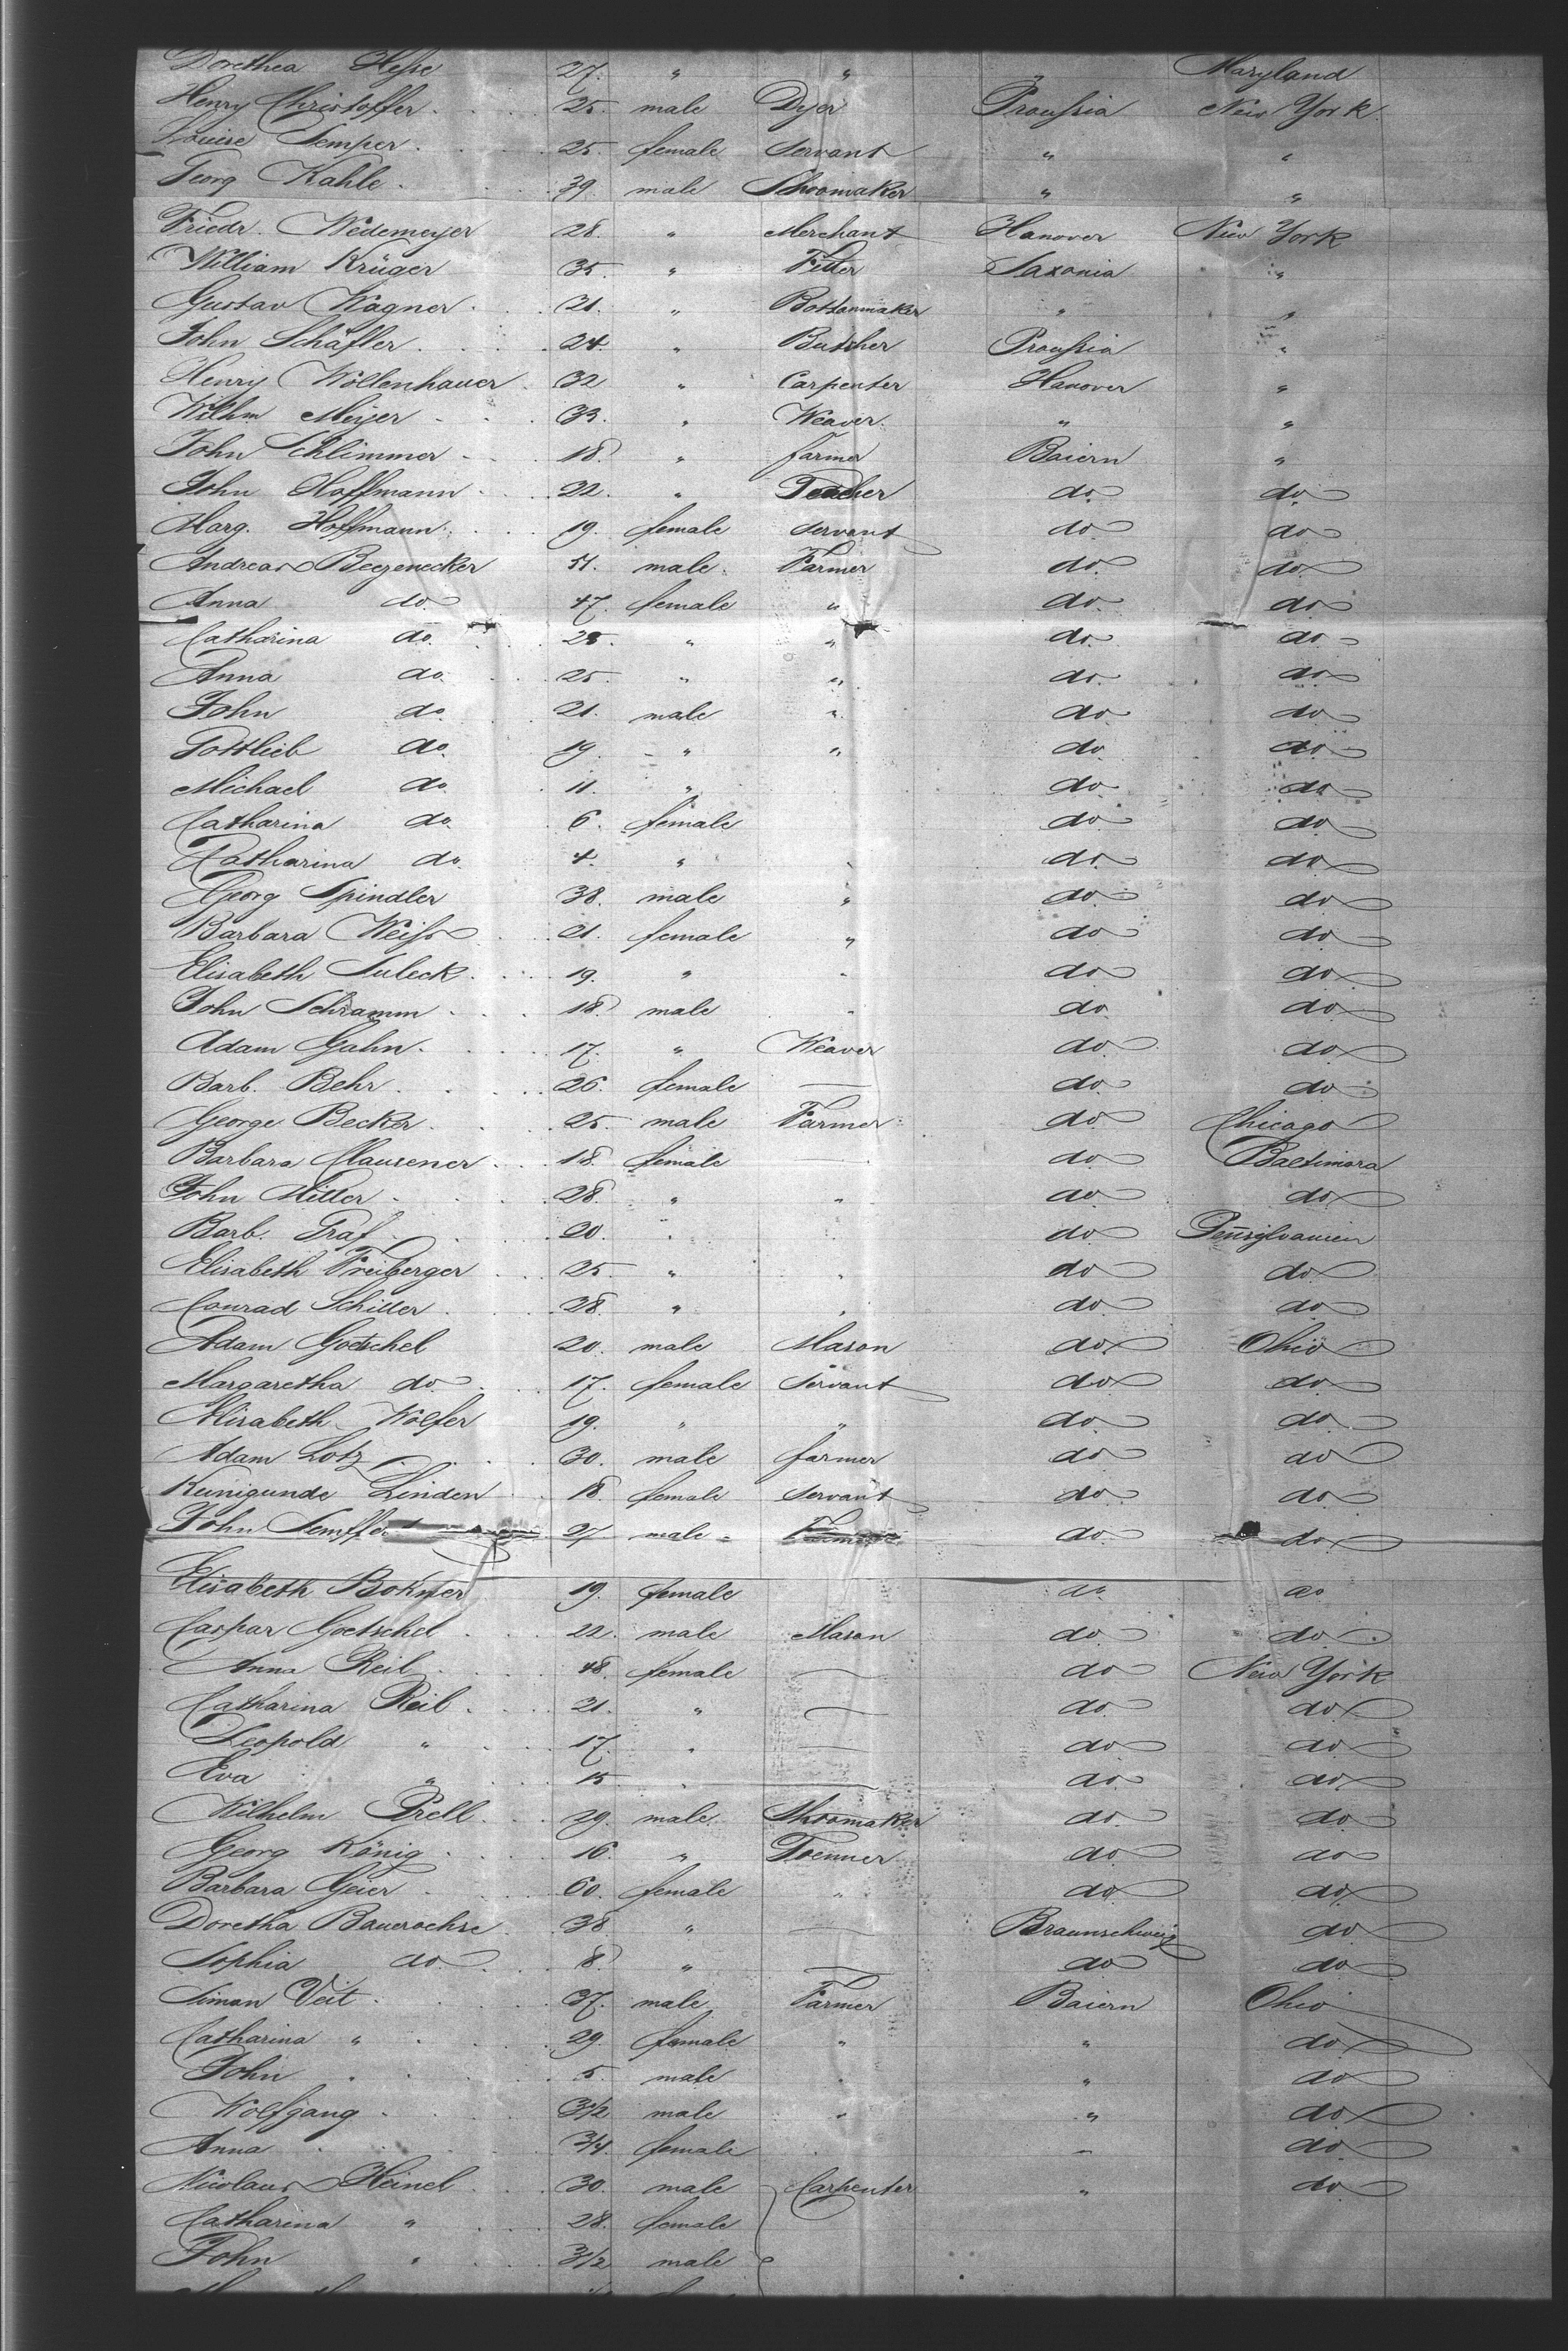 Dorethea Hesse 27. " " " Maryland
Henry Christoffer 25 male Dyer Proussia New York.
Louise Semper 25. female servant " "
Georg Kahle 39. male Schoomaker " "
Friedr. Wedemeyer 28. " Merchant Hanover New York
William Krüger 35. " Saxonia "
Gustav Wagner 21. " Bottonmaker " "
John Schäfler 24. " Butcher Proussia "
Henry Wöltenhauer 32 " Carpenter Hanover "
Wilhm Meyer 33. " Weaver. " "
John Schlimmer 18. " farmer Baiern "
John Hoffmann 22. " Teacher do. do.
Marg. Hoffmann 19. female servant do do
Andreas Beezenecker 51. male. Farmer do. do.
Anna do. 47. female " do. do
Catharina do. 28. " " do. do.
Anna do. 25. " " do. do
John do. 21. male " do do
Gottlieb do. 19. " " do. do
Michael do. 11. " do do
Catharina do. 6. female do do.
Catharina do. 4. " do. do
Georg Spindler 38. male " do. do
Barbara Weiss 21. female " do do
Elisabeth Suleck 19. " " do do
John Schramm 18. male " do. do
Adam Gahn 17. " Weaver do. do
Barb. Behr 26. female — do. do
George Becker 25. male Farmer do Chicago
Barbara Clausener 18. female — do. Baltimora
John Miller 28. " " do do
Barb. Graf 20. " do Pen̄sylvanien
Elisabeth Freiberger 25 " " do do.
Conrad Schiller 28. " " do. do.
Adam Goetschel 20. male Mason do. Ohio
Margaretha do. 17. female Servant do do.
Elisabeth Wolfer 19. " " do. do.
Adam Lotz 30. male farmer do do
Kunigunde Linden 18. female servant do. do.
John 27 male do. do.
Elisabeth 19. female do. do
Caspar Goetschel 22. male Mason do. do.
Anna Reil 48. female — do New York
Catharina Reil 21. " — do. do.
Leopold " 17. " — do do.
Eva " 15 " — do. do.
Wilhelm Prell 29. male. Shoomaker do. do.
Georg König 16. " do do
Barbara Geier 60. female " do do.
Doretha Bauerochse 38 " — Braunschweig do
Sophia do. 8. " — do do.
Simon Veit 37. male Farmer Baiern Ohio
Catharina " 29. female " " do
John " 5. male " " do
Wolfgang 3½ male " " do.
Anna 3/4. female " do.
Nicolaus Heinel 30. male Carpenter " do
Catharina " 28. female
John " 3½ male